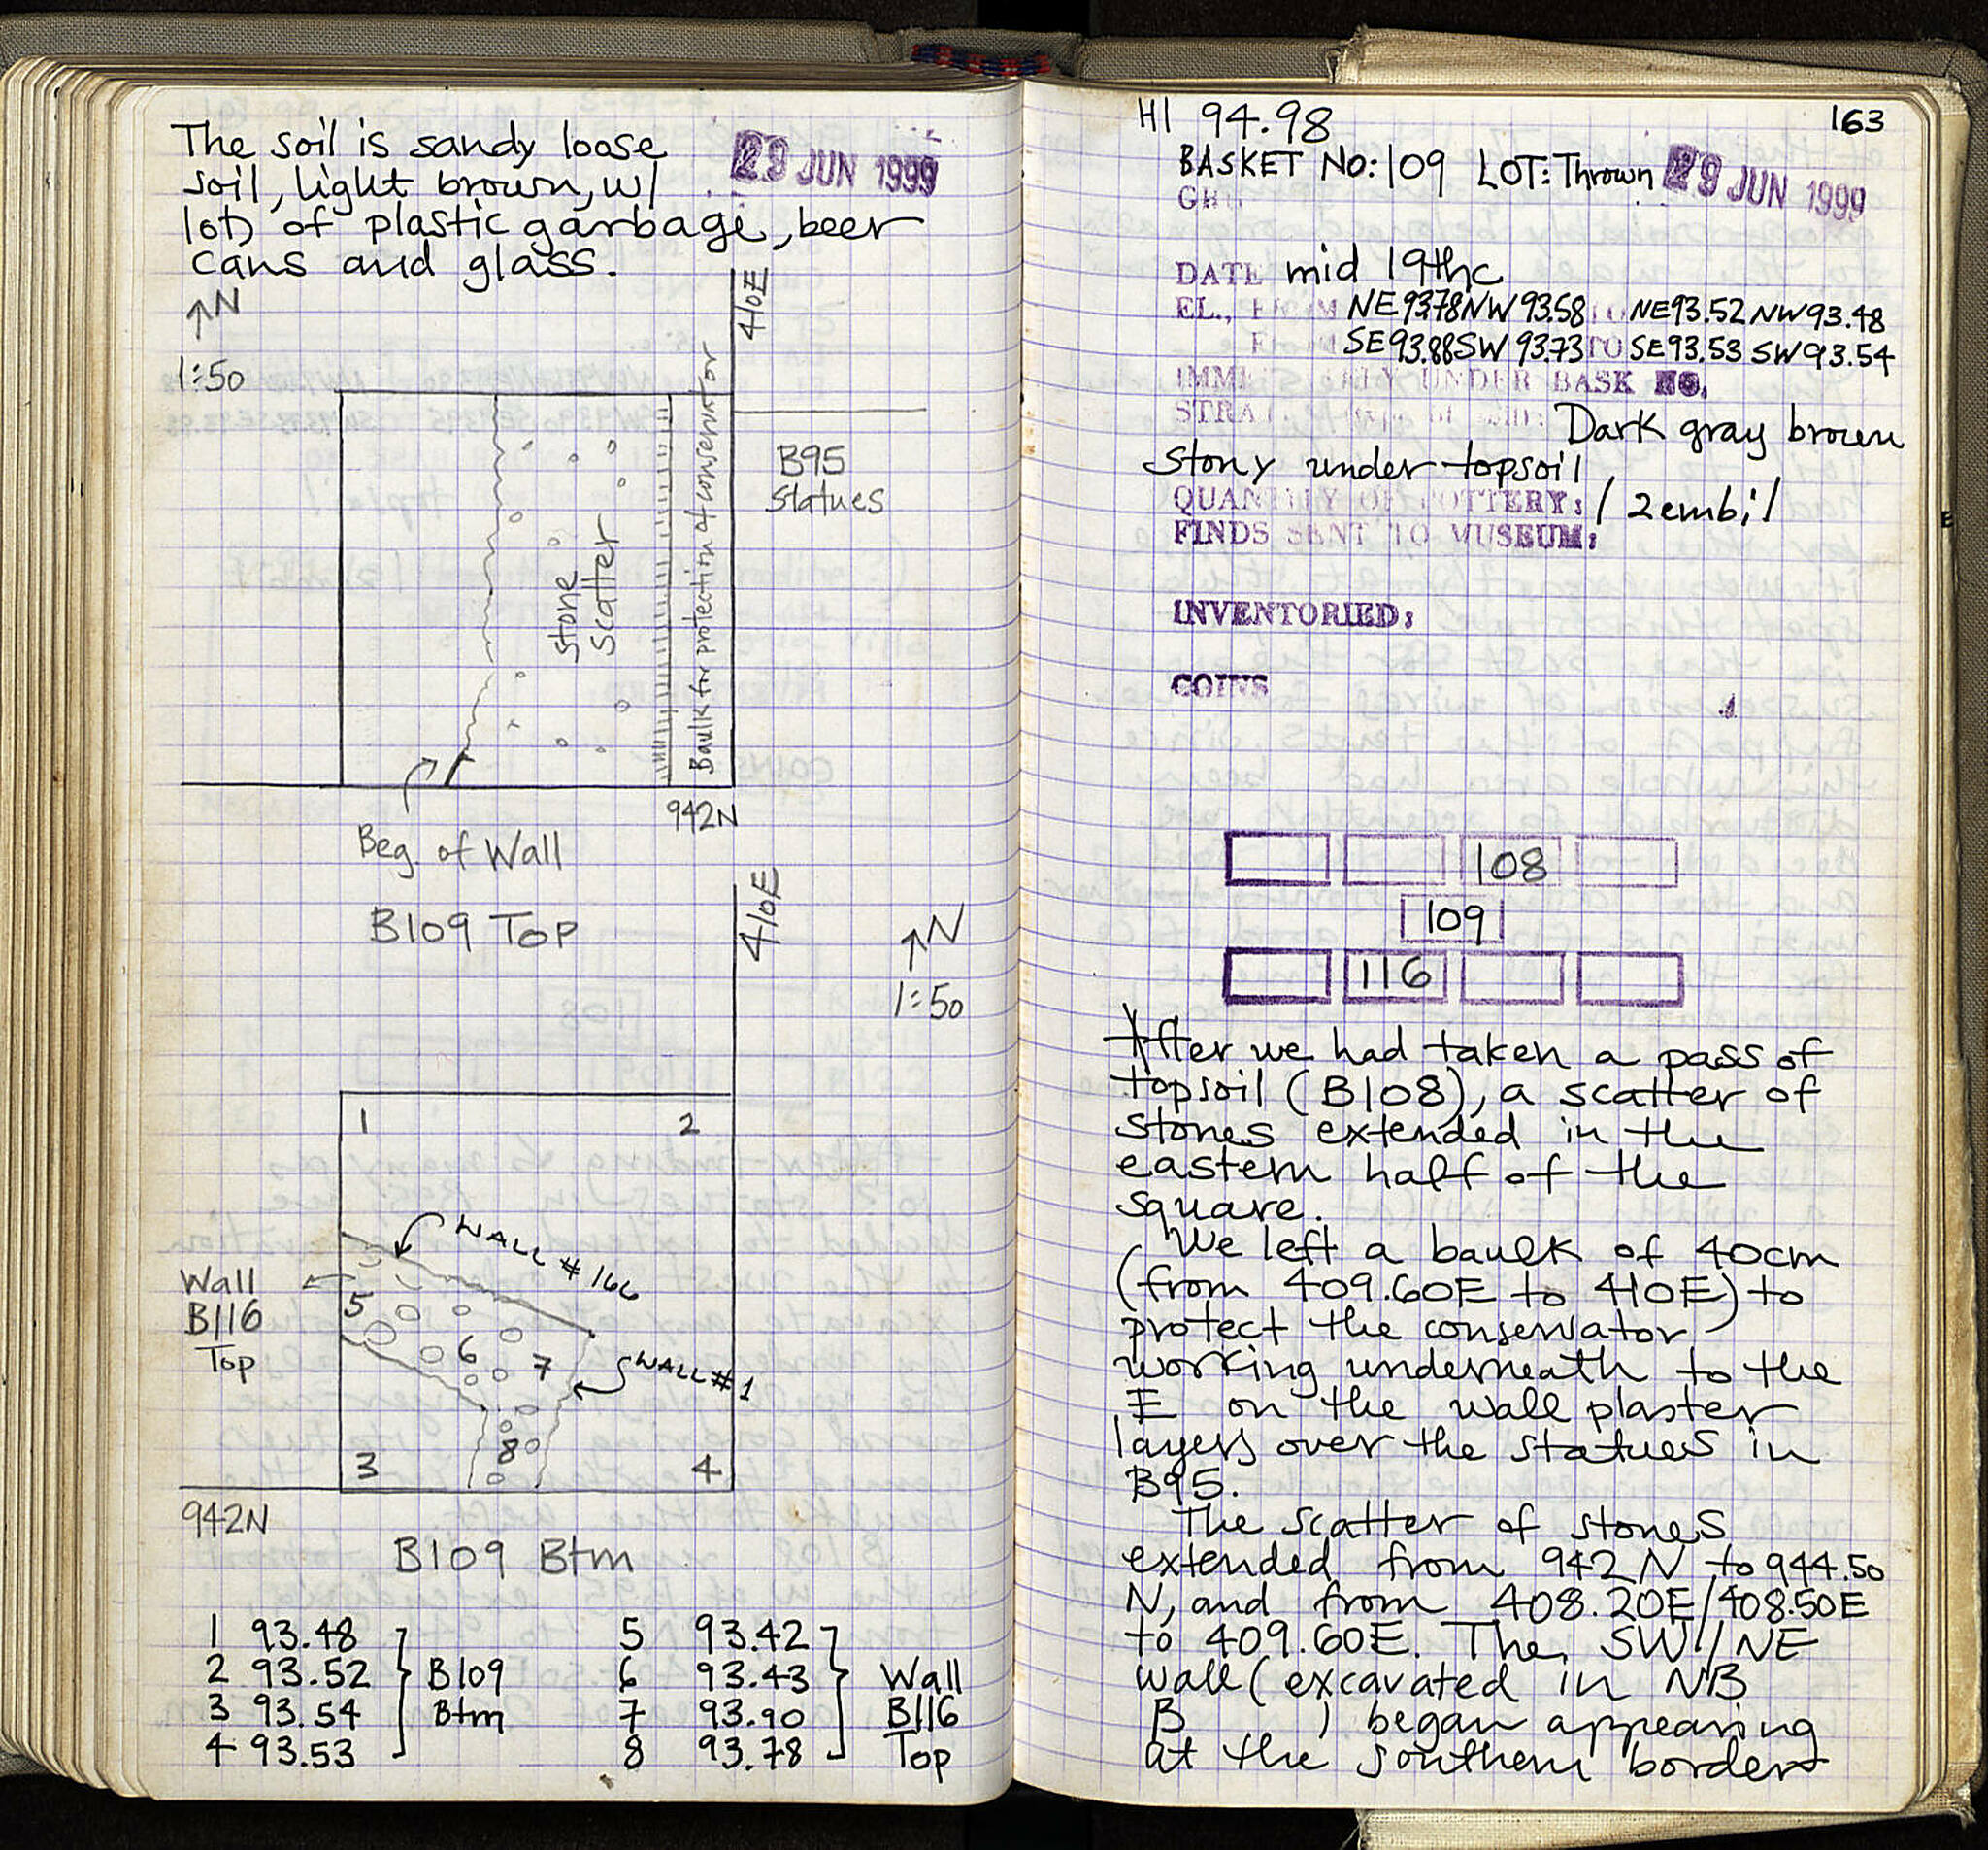 The soil is sandy loose
soil, light brown, w/
lots of plastic garbage, beer
cans and glass.
29 JUN 1999
N
1:50
410E
B95
Statues
Baulk for protection of conservator
stone
scatter
942N
Beg. of Wall
B109 Top
410E
N
1:50
1
2
WALL #166
Wall
B116
Top
5
6
7
WALL #1
8
3
4
942N
B109 Btm
1 93.48
2 93.52
3 93.54
4 93.53
B109
Btm
5 93.42
6 93.43
7 93.90
8 93.78
Wall
B116
Top
HI 94.98
163
BASKET No: 109 LOT: Thrown 29 JUN 1999
DATE mid 19thc
EL., FROM NE 93.78 NW 93.58 TO NE 93.52 NW 93.48
SE 93.88 SW 93.73 TO SE 93.53 SW 93.54
UNDER BASK NO.
Dark gray brown
stony under topsoil
QUANTITY OF POTTERY: 1 zembil
FINDS SENT TO MUSEUM:
INVENTORIED:
COINS
108
109
116
After we had taken a pass of
topsoil (B108), a scatter of
stones extended in the
eastern half of the
square.
We left a baulk of 40cm
(from 409.60E to 410E) to
protect the conservator
working underneath to the
E on the wall plaster
layers over the statues in
B95.
The scatter of stones
extended from 942 N to 944.50
N, and from 408.20E/408.50E
to 409.60E. The SW//NE
wall (excavated in NB
B ) began appearing
at the southern border